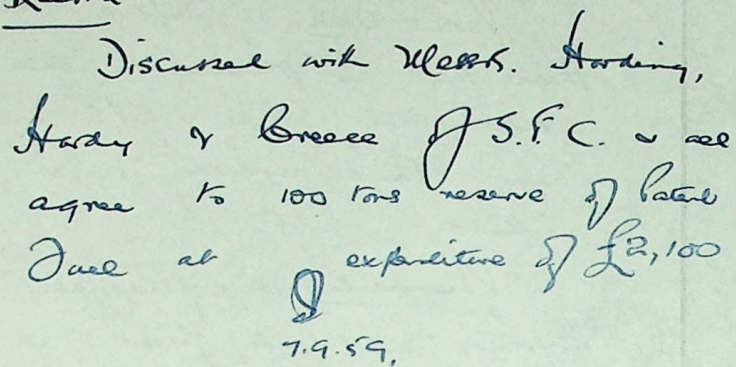 Discussed with Messrs. Harding,
Hardy & Greece of S.F.C. & all
agree to 100 tons reserve of Patent
Fuel at expenditure of £2,100
7.9.59.